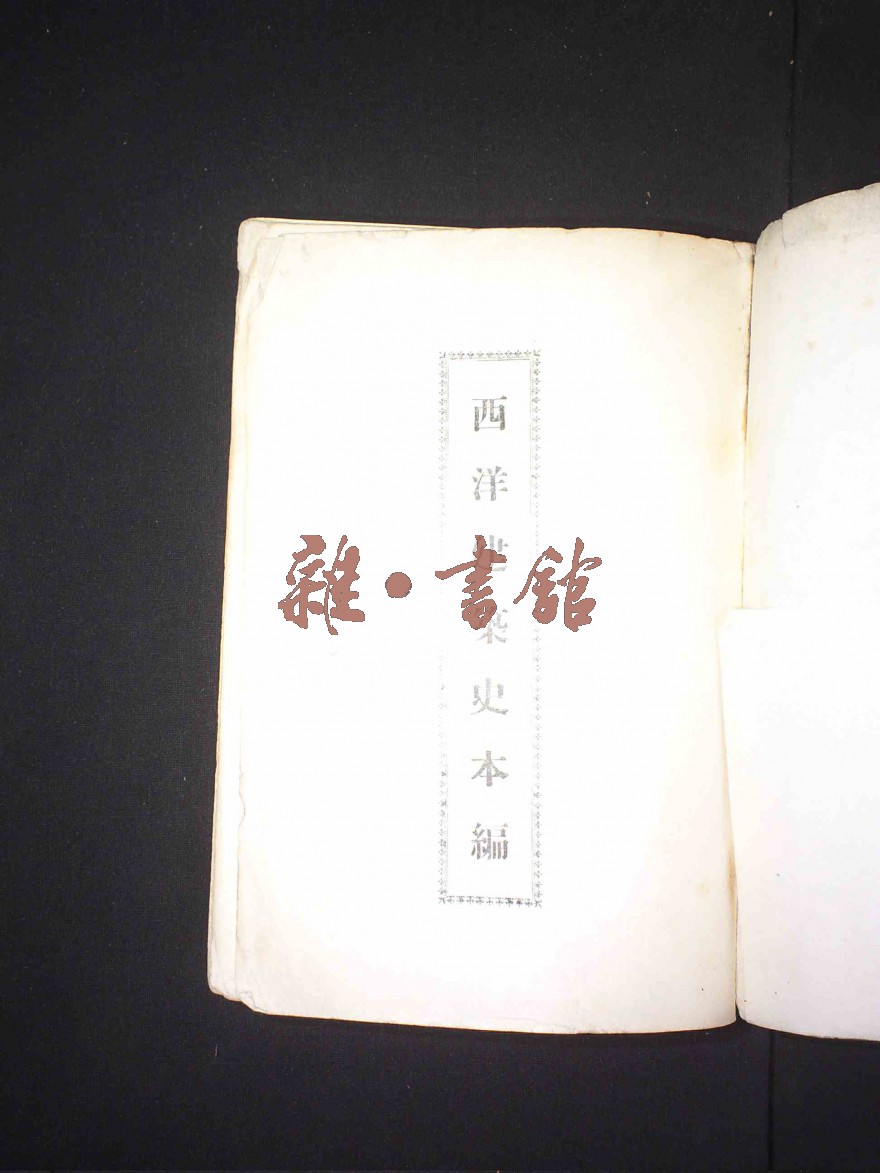 西洋建築史本編
雜·書館